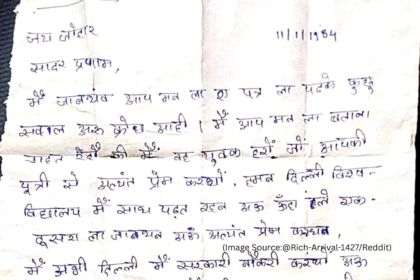 जय जोहार 11/1/1984
सादर प्रणाम,
मैं जानथंव आप मन ला ए पत्र ला पढके कुछु
सवाल अऊ क्रोध आही । मैं आप मन ला बताना
चाहत हौं की मैं वह युवक हरों जो आपकी
पुत्री से अत्यंत प्रेम करथों, हमन दिल्ली विश्व-
विद्यालय में साथ पढ़त रहन अऊ ऊँहा ले एक-
दूसरा ला जानथन अऊ अत्यंत प्रेम करथन,
(Image Source:@Rich-Arrival-1427/Reddit)
मैं अभी दिल्ली में सरकारी नौकरी करथों अऊ